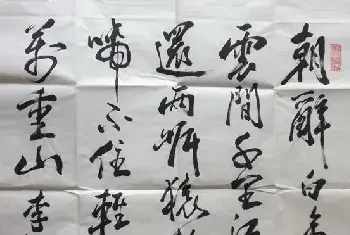 朝辭白
雲間千里江
還兩岍猿
啼不住輕
萬重山李